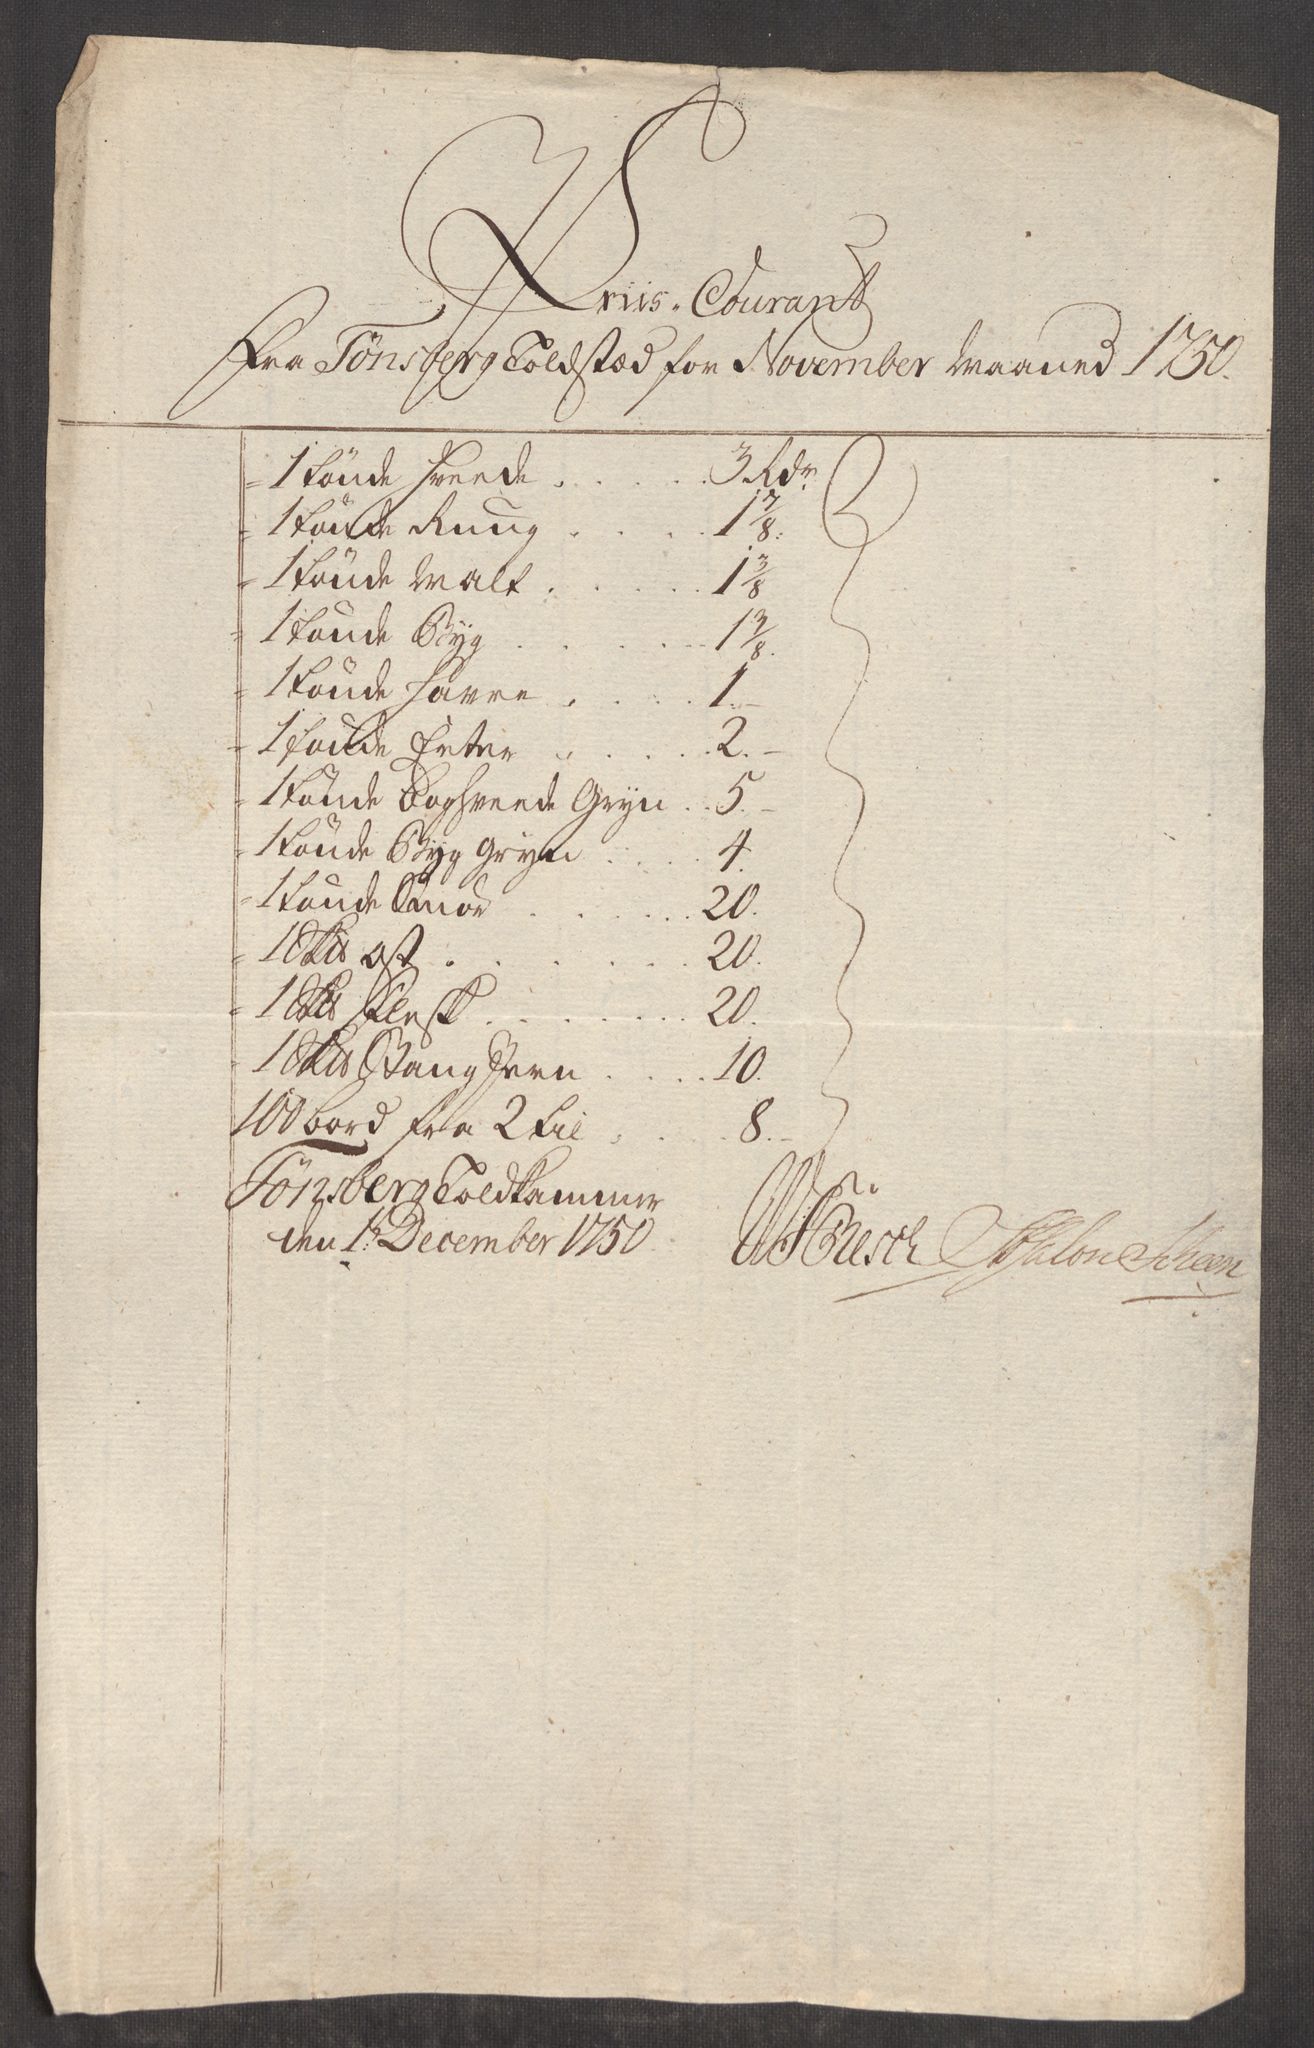 Priis-Courant
Fra Tönsberg Toldstæd for November Maaned 1750.
1 tönde Hvede . . . . . 3 Rdr
1 tönde Ruug . . . . 1 7/8.
1 tönde Malt . . . . . 1 3/8
1 tönde Byg . . . . . 1 3/8.
1 tönde Havre . . . . 1.-
1 tönde Erter . . . . . 2.-
1 tönde Boghvede Gryn . . 5.-
1 tönde Byg Gryn . . . . 4.
1 tönde Smör . . . . . . 20.
1 Sk℔ ost . . . . . . 20.
1 Sk℔ Flesk . . . . . . . 20.
1 Sk℔ Stang Jern . . . . 10.
100 bord fra 2 til . . . . 8.-
Tönsberg Toldkammer
den 1te December 1750.
Büsch Absalon Scheen